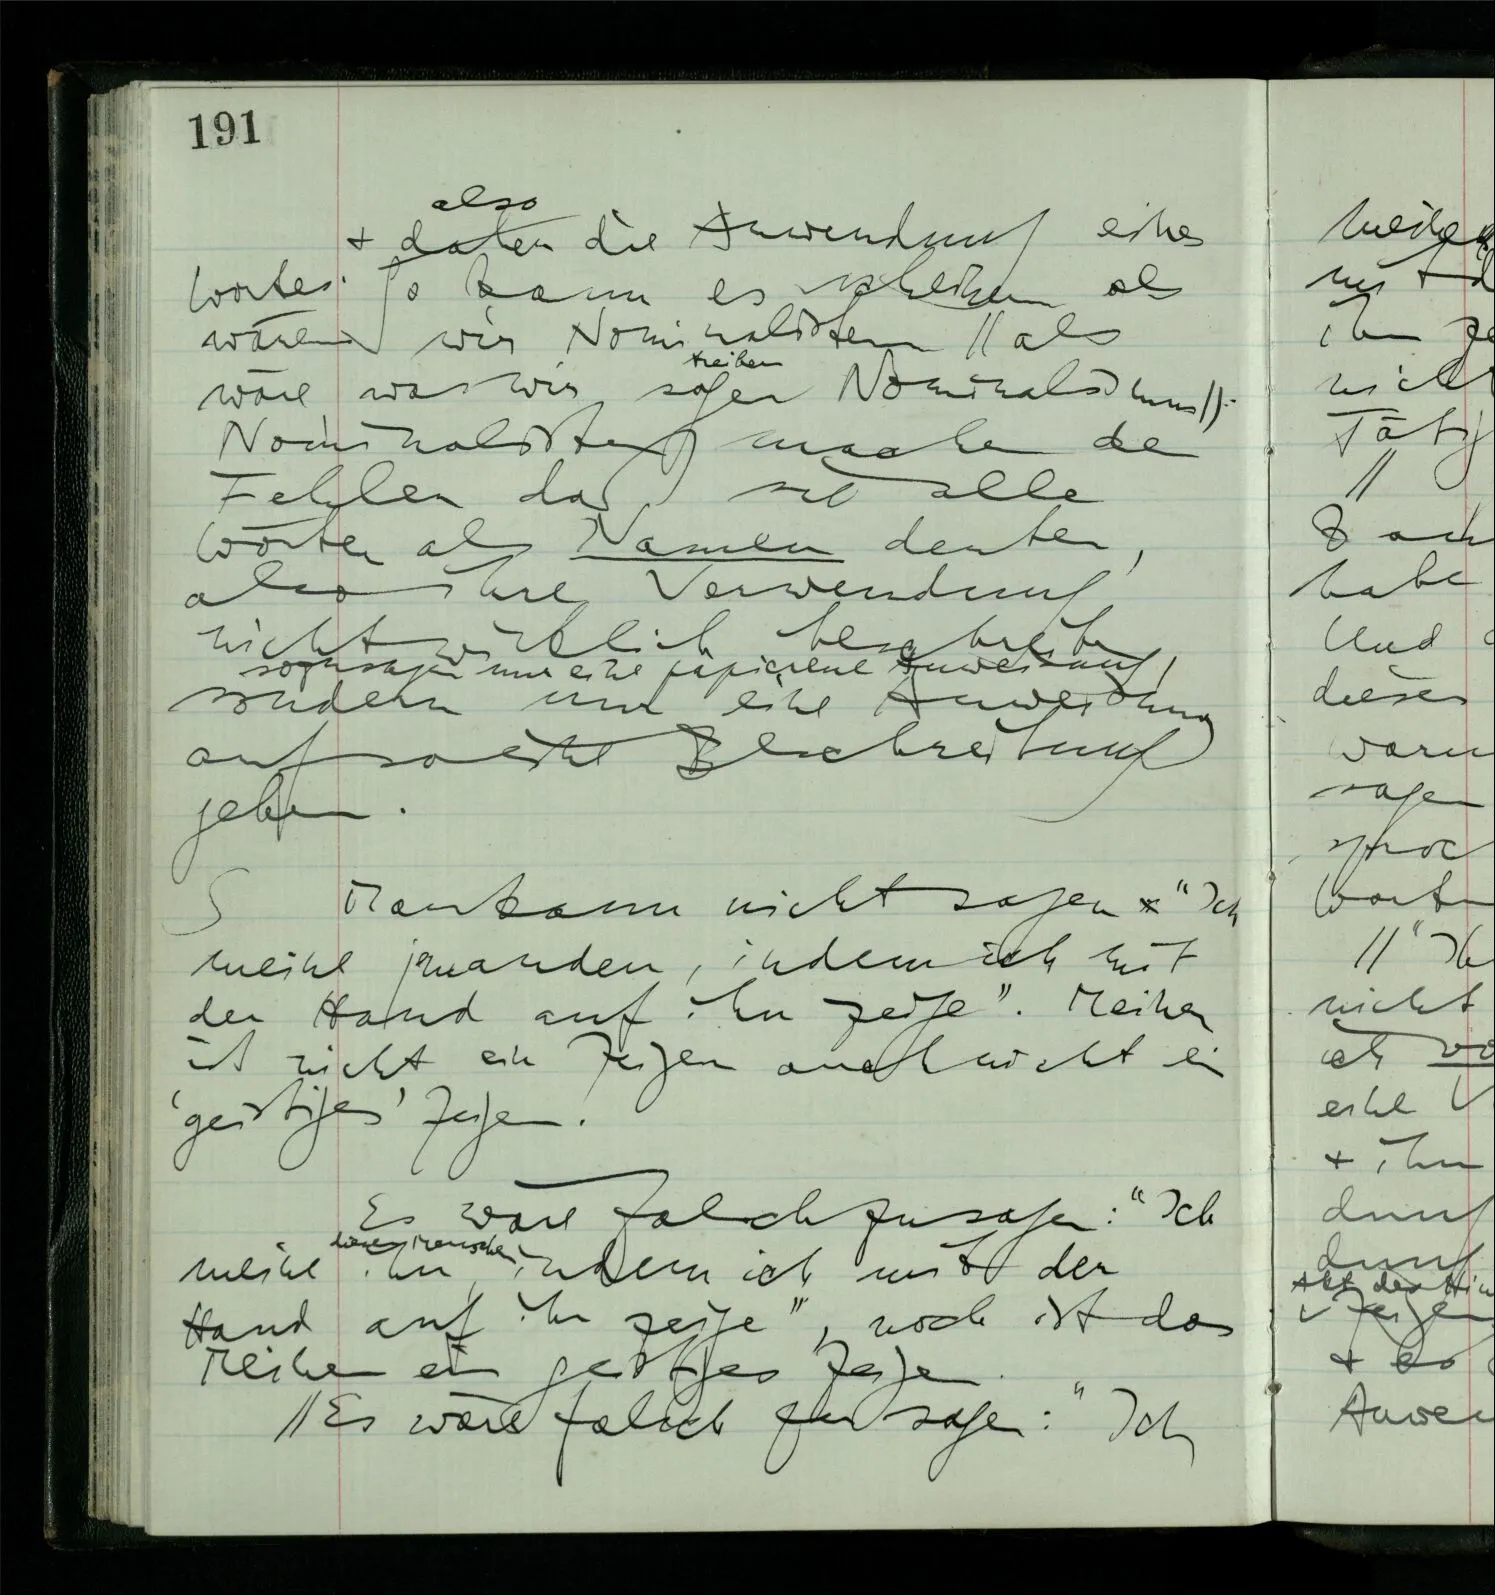 191
also
+ daher die Anwendung eines
Wortes. So kann es scheinen als
wären wir Nominalisten // als
treiben
wäre was wir sagen Nominalismus//.
Nominalisten machen den
Fehler daß sie alle
Wörter als Namen deuten,
also ihre Verwendung
nicht wirklich beschreiben,
sozusagen nur eine papierene Anweisung,
sondern nur eine Anweisung
auf so eine Beschreibung
geben.
S Man kann nicht sagen "Ich
meine jemanden, indem ich mit
der Hand auf ihn zeige". Meinen
ist nicht ein Zeigen auch nicht ein
'geistiges' Zeigen.
Es wäre falsch zu sagen: "Ich
diesen Menschen
meine ihn, indem ich mit der
Hand auf ihn zeige", noch ist das
Meinen ein geistiges Zeigen.
//Es wäre falsch zu sagen: "Ich
ihn
nicht
//
habe
Und
dieses
sagen
//"Ich
nicht
ich
eine
+ ihn